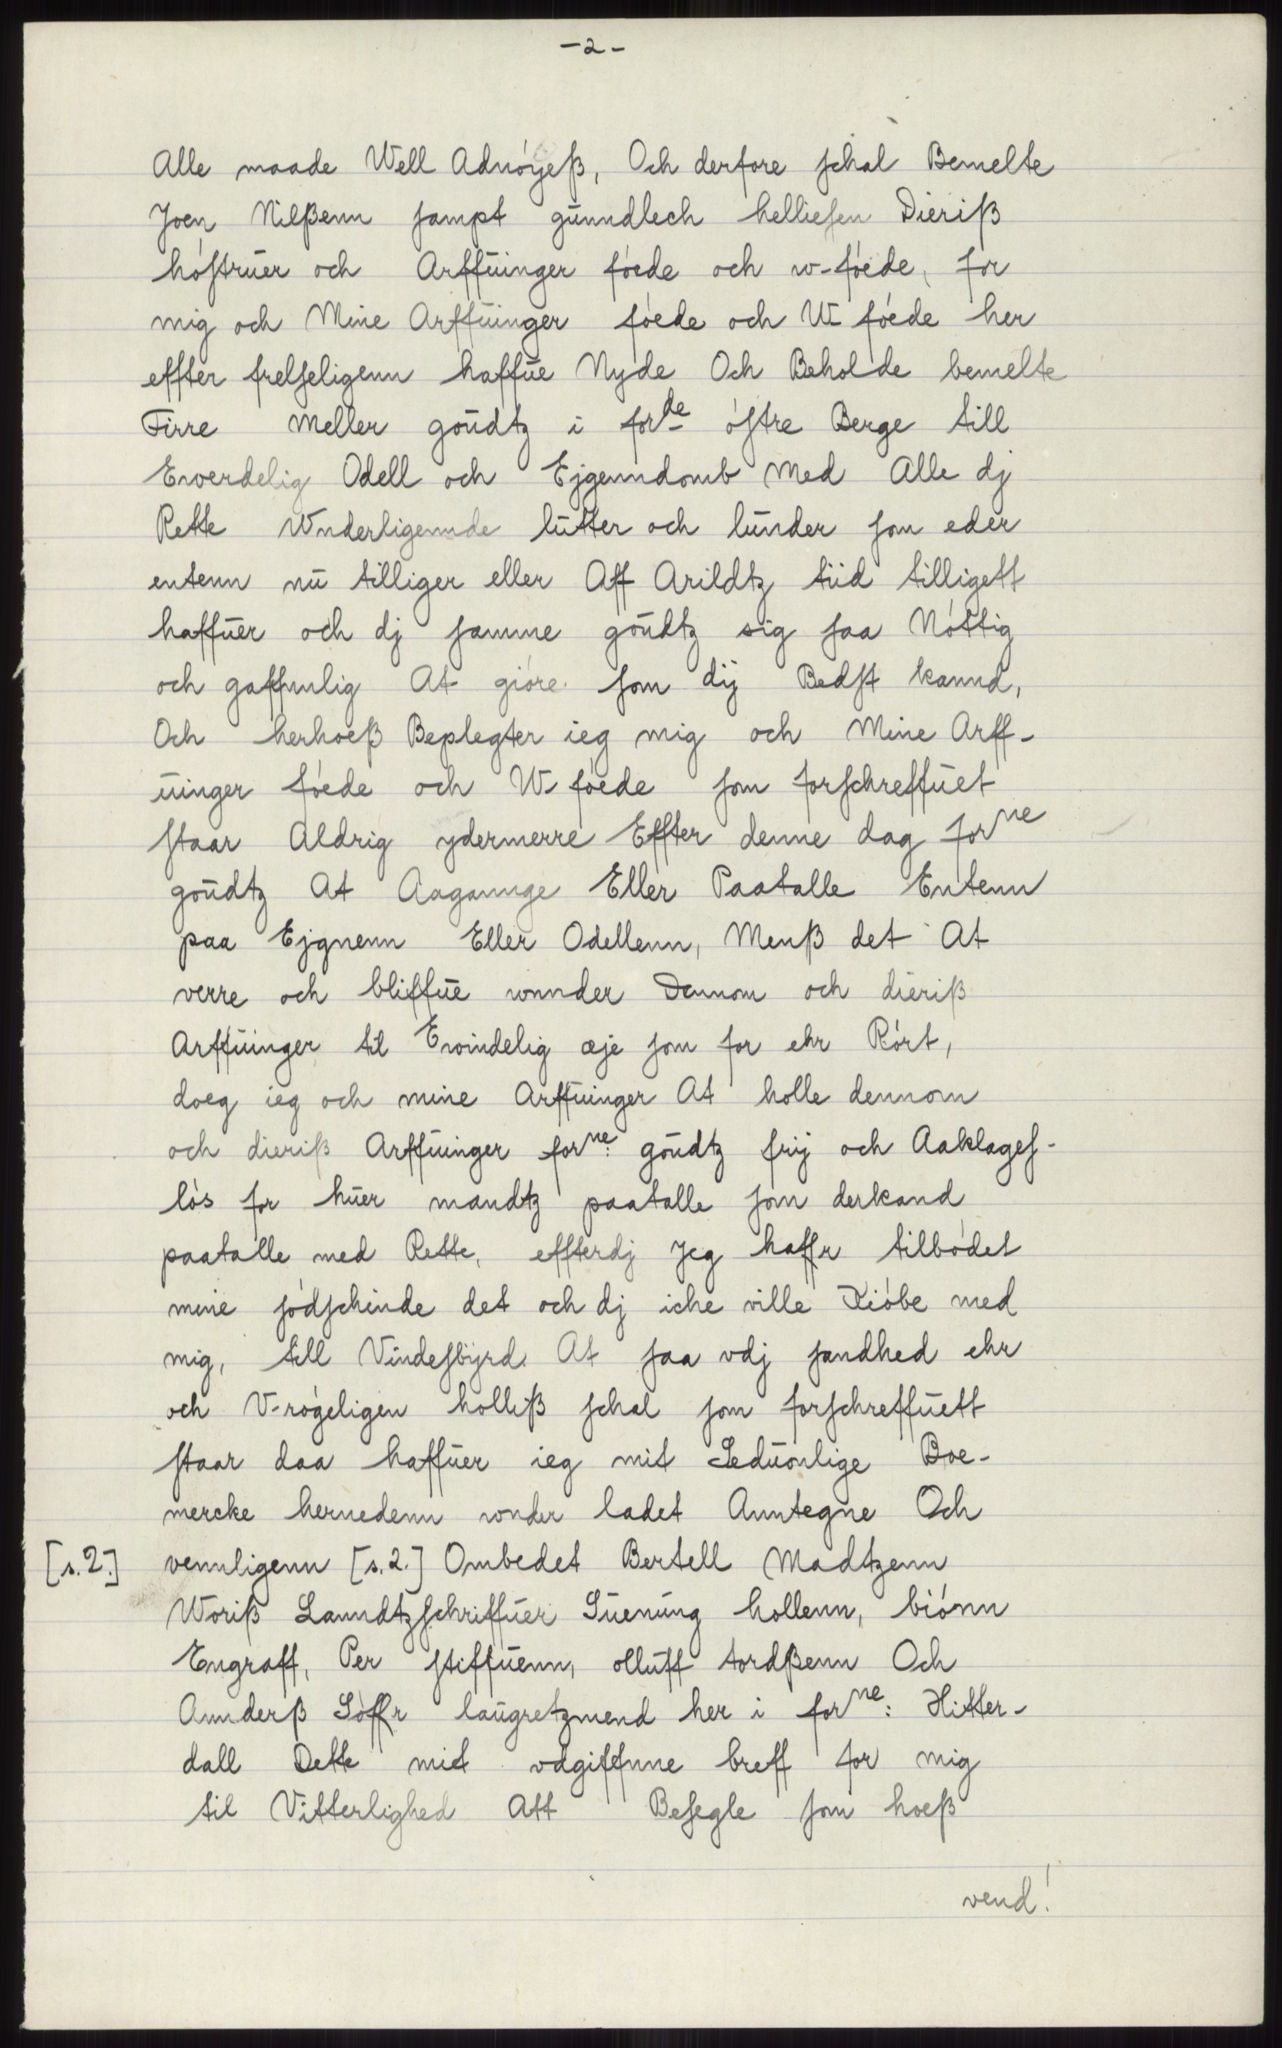 -2-
Alle maade Well Adnóÿeß, Och derfore schal Bemelte
Joen Nilßenn sampt gůnndlech helliesen Dieriß
hóstrůer och Arffůinger fóede och w-fóede, for
mig och Mine Arffůinger fóede och W-fóede her
effter frelseligenn haffůe Nyde Och Beholde bemelte
Firre Meller goůdtz i for<sup>de</sup> óstre Berge till
Ewerdelig Odell och Ejgenndomb Med Alle dj
Rette Wnderligennde lůtter och lůnder som eder
entenn nů tilliger eller Aff Arildtz tiid tilligett
haffůer och dj samme goůdtz sig saa Nóttig
och gaffnnlig At gióre som dij Bedst kannd,
Och herhoeß Beplegter ieg mig och Mine Arff-
ůinger fóede och W-fóede som forschreffůet
staar Aldrig ydermerre Effter denne dag for<sup>ne</sup>
goůdtz At Aagannge Eller Paatalle Entenn
paa Ejgnenn Eller Odellenn, Menß det At
verre och bliffůe wnnder Dennom och dieriß
Arffůinger til Ewindelig æje som for ehr Rórt,
doeg ieg och mine Arffůinger At holle dennom
och dieriß Arffůinger for<sup>ne</sup>: goůdtz frij och Aaklages-
lós for hůer mandtz paatalle som derkand
paatalle med Rette, effterdj Jeg haffr tilbódet
mine sódschinde det och dj iche ville Kióbe med
mig, till Vindesbÿrd At saa vdj sandhed ehr
och V-rógeligen holliß schal som forschreffůett
staar daa haffůer ieg mit Seduónlige Boe-
mercke hernedenn wnder ladet Anntegne Och
[s.2.] vennligenn [s.2.] Ombedet Bertell Madtzenn
Woriß Lanndtzschriffůer Sůenůng hollenn, biónn
Engraff, Per stiffůenn, ollůff tordßenn Och
Annderß Sóffr laůgretzmend her i for<sup>ne</sup>: Hitter-
dall Dette mit vdgiffnne breff for mig
til Vitterlighed Att Besegle som hoeß
vend!